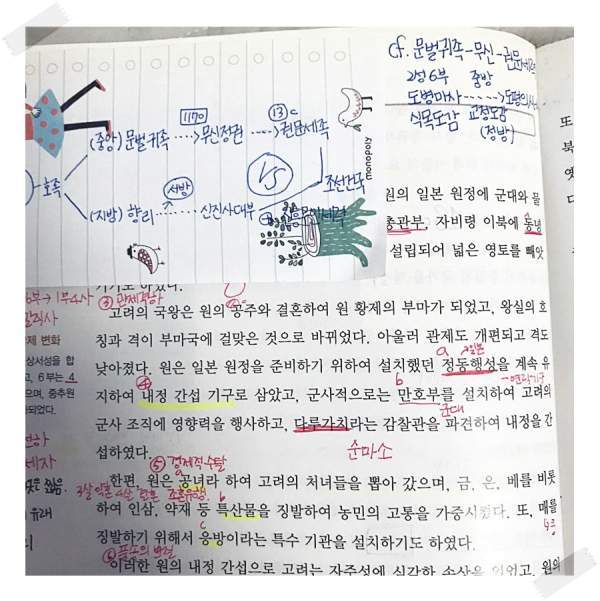 cf. 문벌귀족-무신-권문세족
2성6부 중방
도병마사------>도평의사
식목도감 교정도감
(정방)
호족
(중앙) 문벌귀족 ----> 무신정권 ----> 권문세족
1170
13c
VS
조선건국
서방
(지방) 향리 ----> 신진사대부
monopoly
원의 일본 원정에 군대와 물
총관부, 자비령 이북에 동녕
설립되어 넓은 영토를 빼앗
기기도 하였다.
6부→1부4사
③ 관제격하
고려의 국왕은 원의 공주와 결혼하여 원 황제의 부마가 되었고, 왕실의 호
칭과 격이 부마국에 걸맞은 것으로 바뀌었다. 아울러 관제도 개편되고 격도
낮아졌다. 원은 일본 원정을 준비하기 위하여 설치했던 정동행성을 계속 유
a
일본
지하여 내정 간섭 기구로 삼았고, 군사적으로는 만호부를 설치하여 고려의
④
b
군대
군사 조직에 영향력을 행사하고, 다루가치라는 감찰관을 파견하여 내정을 간
섭하였다.
순마소
⑤ 경제적 수탈
한편, 원은 공녀라 하여 고려의 처녀들을 뽑아 갔으며, 금, 은, 베를 비롯
하여 인삼, 약재 등 특산물을 징발하여 농민의 고통을 가중시켰다. 또, 매를
b
c
징발하기 위해서 응방이라는 특수 기관을 설치하기도 하였다.
이러한 원의 내정 간섭으로 고려는 자주성에 심각한 손상을 입었고, 원의
제 변화
상서성을 합
고, 6부는 4
으며, 중추원
되었다.
유래
또
북
옛
다